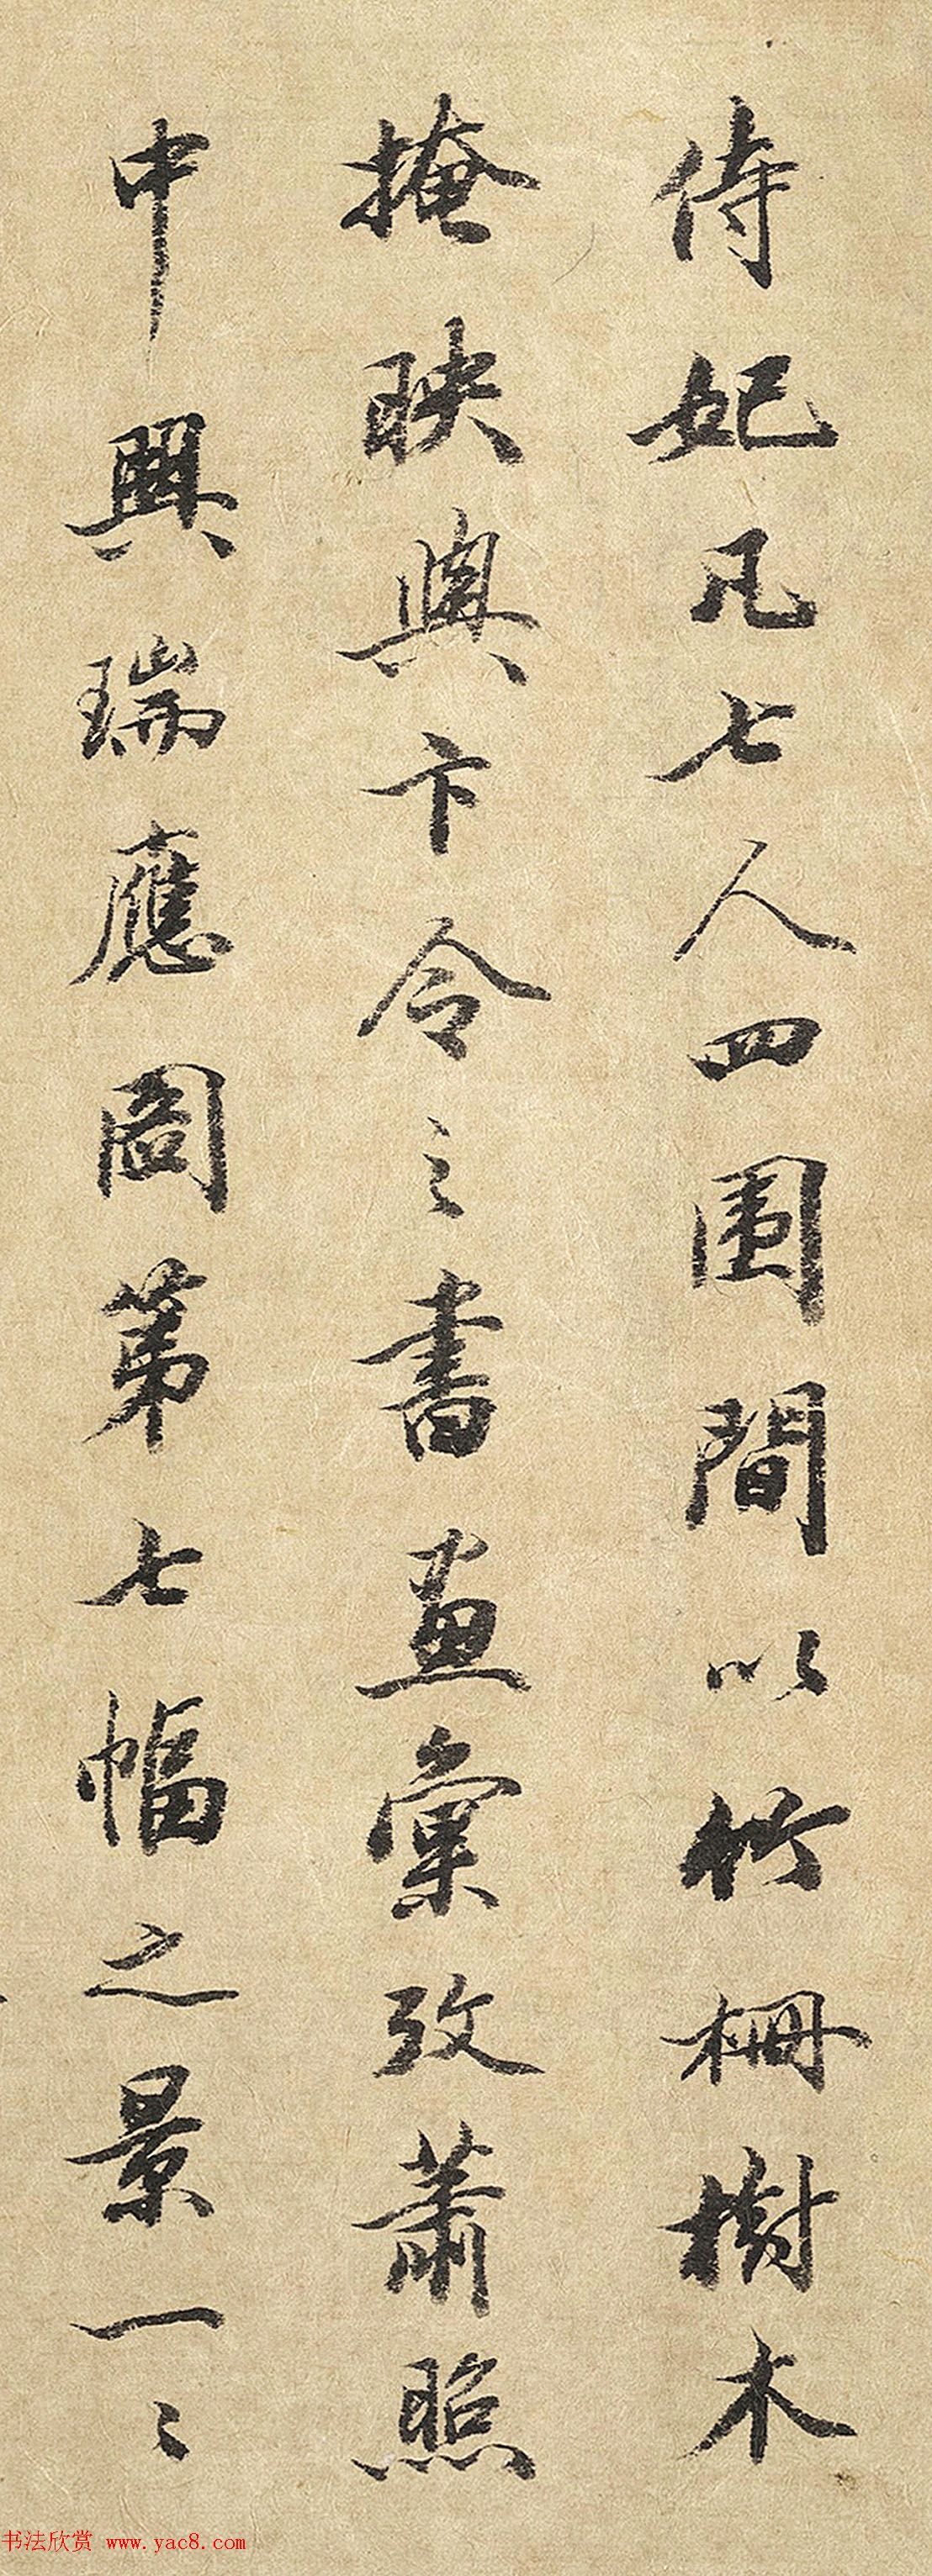 侍妃凡七人四围間以竹柵樹木
掩映與卞令之書畫彙攷蕭照
中興瑞應圖第七幅之景一〻
书法欣赏 www.yac8.com